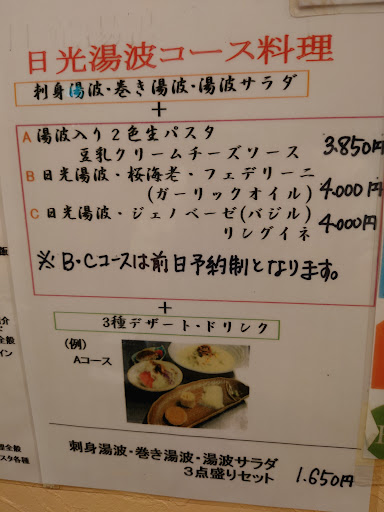 日光湯波コース料理
刺身湯波・巻き湯波・湯波サラダ
+
A 湯波入り2色生パスタ
豆乳クリームチーズソース 3.850円
B 日光湯波・桜海老・フェデリーニ
(ガーリックオイル) 4.000円
C 日光湯波・ジェノベーゼ(バジル)
リングイネ 4.000円
※B・Cコースは前日予約制となります。
+
3種デザート・ドリンク
(例)
Aコース
刺身湯波・巻き湯波・湯波サラダ
3点盛りセット 1.650円
飯
介
全般
イン
全般
スタ各種